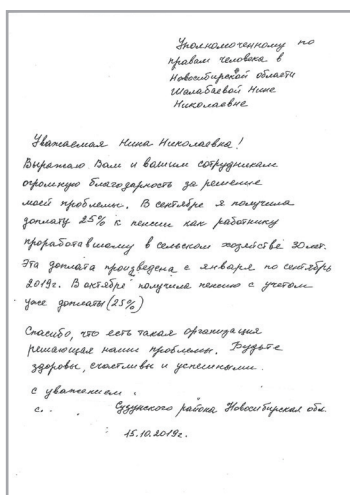 Уполномоченному по
правам человека в
Новосибирской области
Шалабаевой Нине
Николаевне
Уважаемая Нина Николаевна!
Выражаю Вам и вашим сотрудникам
огромную благодарность за решение
моей проблемы. В сентябре я получила
доплату 25% к пенсии как работнику
проработавшему в сельском хозяйстве 30 лет.
Эта доплата произведена с января по сентябрь
2019г. В октябре получила пенсию с учетом
уже доплаты (25%)
Спасибо, что есть такая организация
решающая наши проблемы. Будьте
здоровы, счастливы и успешными.
с уважением
с. Сузунского района Новосибирская обл.
15.10.2019г.